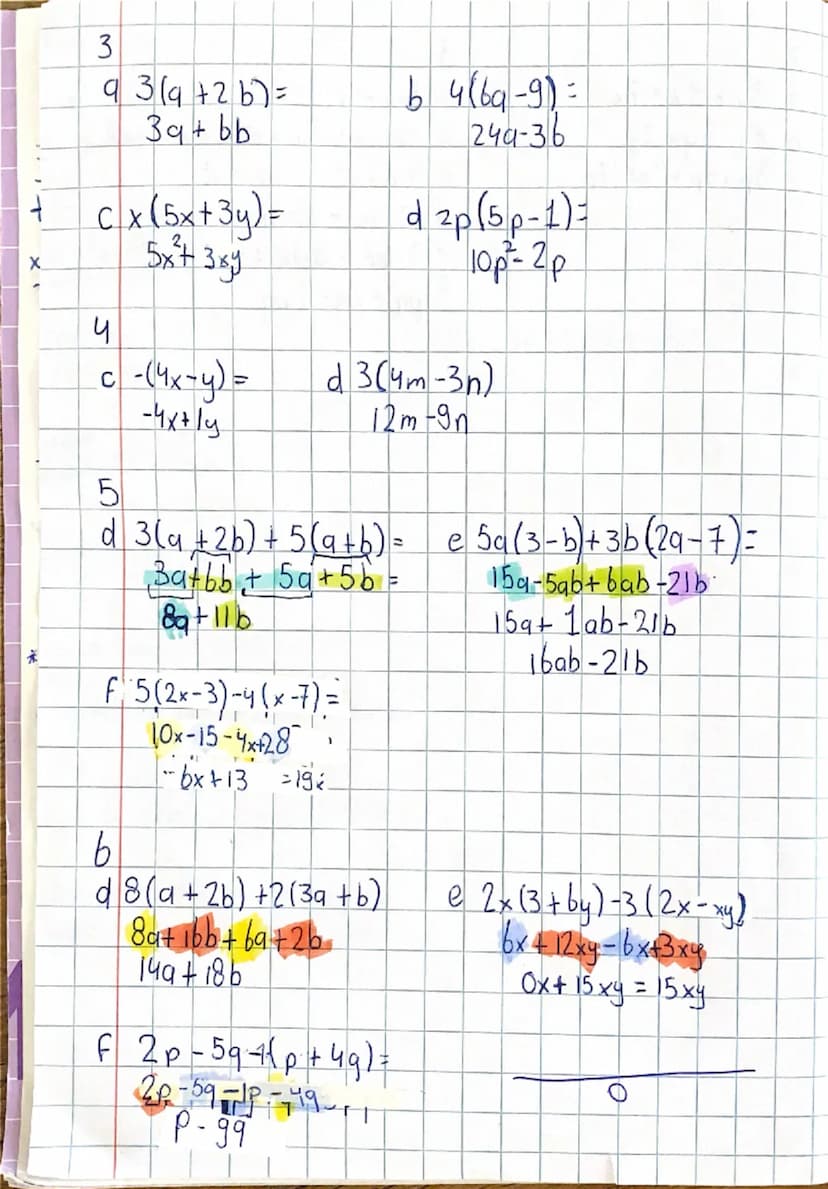 3
a 3(a+2b)=
3a+6b
b 4(6a-9)=
24a-36
c x(5x+3y)=
5x²+3xy
d 2p(5p-1)=
10p²-2p
4
c -(4x-y)=
-4x+1y
d 3(4m-3n)
12m-9n
5
d 3(a+2b)+5(a+b)=
3a+6b+5a+5b=
8a+11b
e 5a(3-b)+3b(2a-7)=
15a-5ab+6ab-21b
15a+1ab-21b
16ab-21b
f 5(2x-3)-4(x-7)=
10x-15-4x+28
6x+13
6
d 8(a+2b)+2(3a+b)
8a+16b+6a+2b
14a+18b
e 2x(3+6y)-3(2x-xy)
6x+12xy-6x+3xy
0x+15xy=15xy
f 2p-5q-1(p+4q)=
2p-5q-1p-4q
p-9q
0